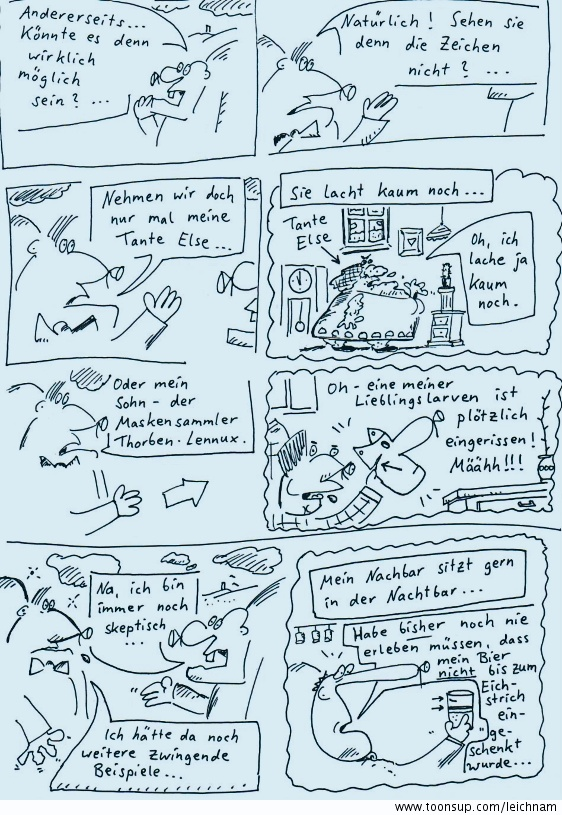 Andererseits...
Könnte es denn
wirklich
möglich
sein? ...
Natürlich! Sehen sie
denn die Zeichen
nicht? ...
Nehmen wir doch
nur mal meine
Tante Else...
Sie lacht kaum noch...
Tante
Else
Oh, ich
lache ja
kaum
noch.
Oder mein
Sohn - der
Maskensammler
Thorben-Lennux.
Oh - eine meiner
Lieblingslarven ist
plötzlich
eingerissen!
Määhh!!!
Na, ich bin
immer noch
skeptisch
...
Ich hätte da noch
weitere zwingende
Beispiele...
Mein Nachbar sitzt gern
in der Nachtbar...
Habe bisher noch nie
erleben müssen, dass
mein Bier
nicht bis zum
Eich-
strich
ein-
ge-
schenkt
wurde...
www.toonsup.com/leichnam